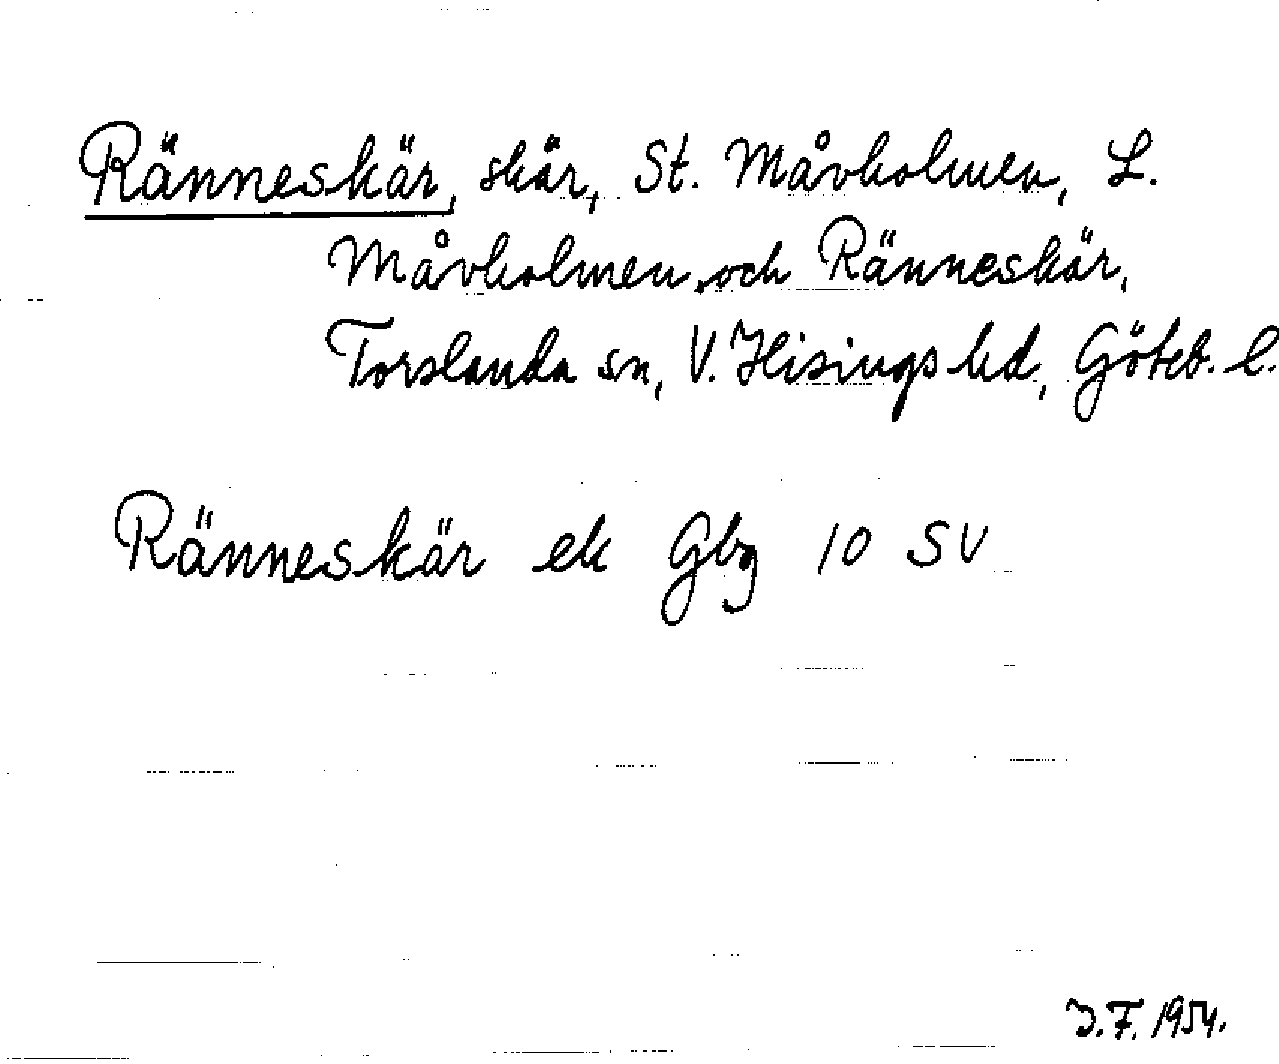 Ränneskär, skär, St. Måvholmen, L.
Måvholmen, och Ränneskär,
Torslanda sn, V. Hisings hd, Göteb. l.
Ränneskär ek Gbg 10 SV
J.F. 1954.